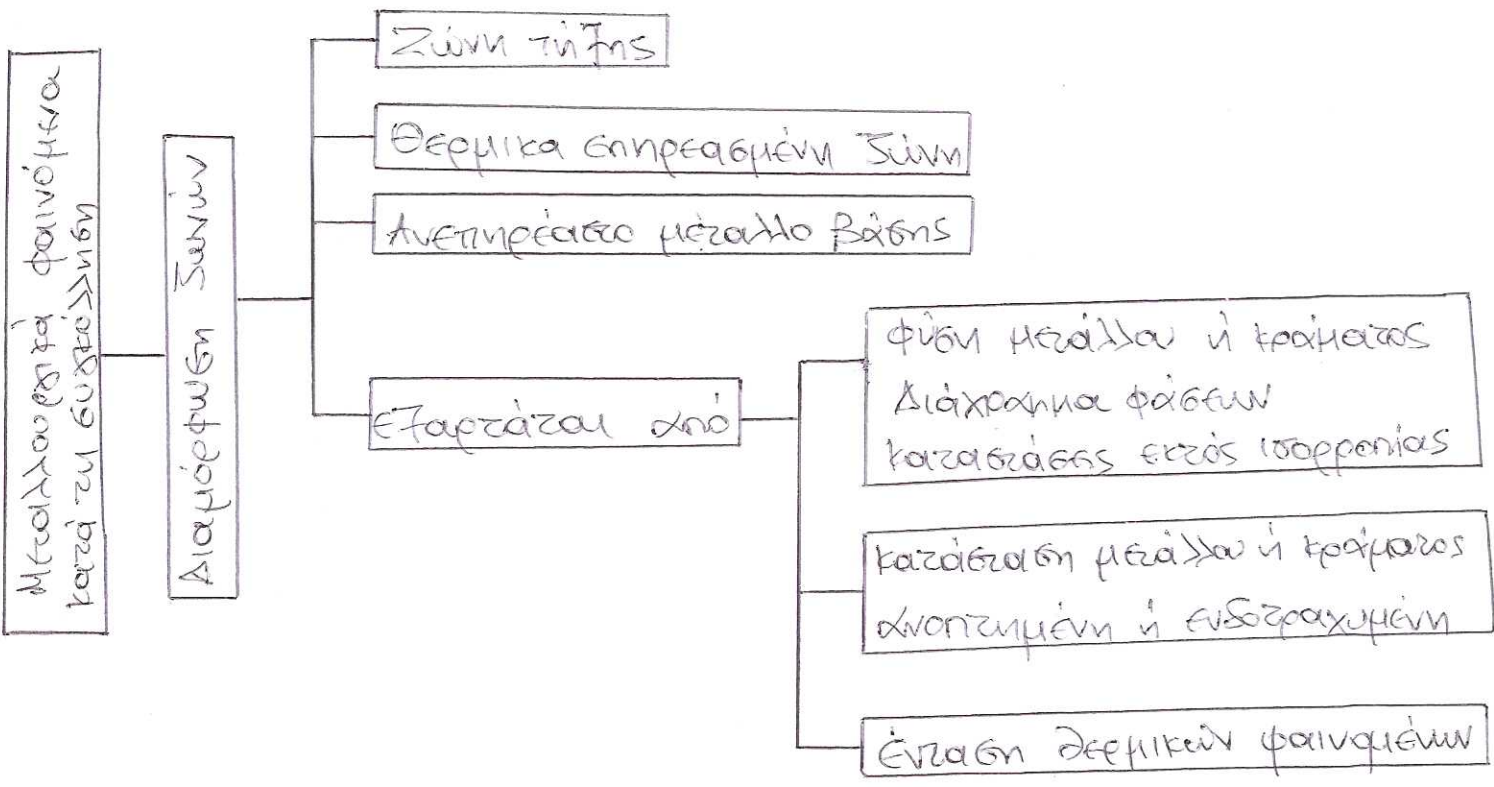 Μεταλλουργικά φαινόμενα
κατά τη συγκόλληση
Διαμόρφωση ζωνών
Ζώνη τήξης
Θερμικα επηρεασμένη ζώνη
Ανεπηρέαστο μέταλλο βάσης
Εξαρτάται από
Φύση μετάλλου ή κράματος
Διάγραμμα φάσεων
Καταστάσεις εκτός ισορροπίας
Κατάσταση μετάλλου ή κράματος
ανοπτημένη ή ενδοτραχυμένη
Ένταση θερμικών φαινομένων